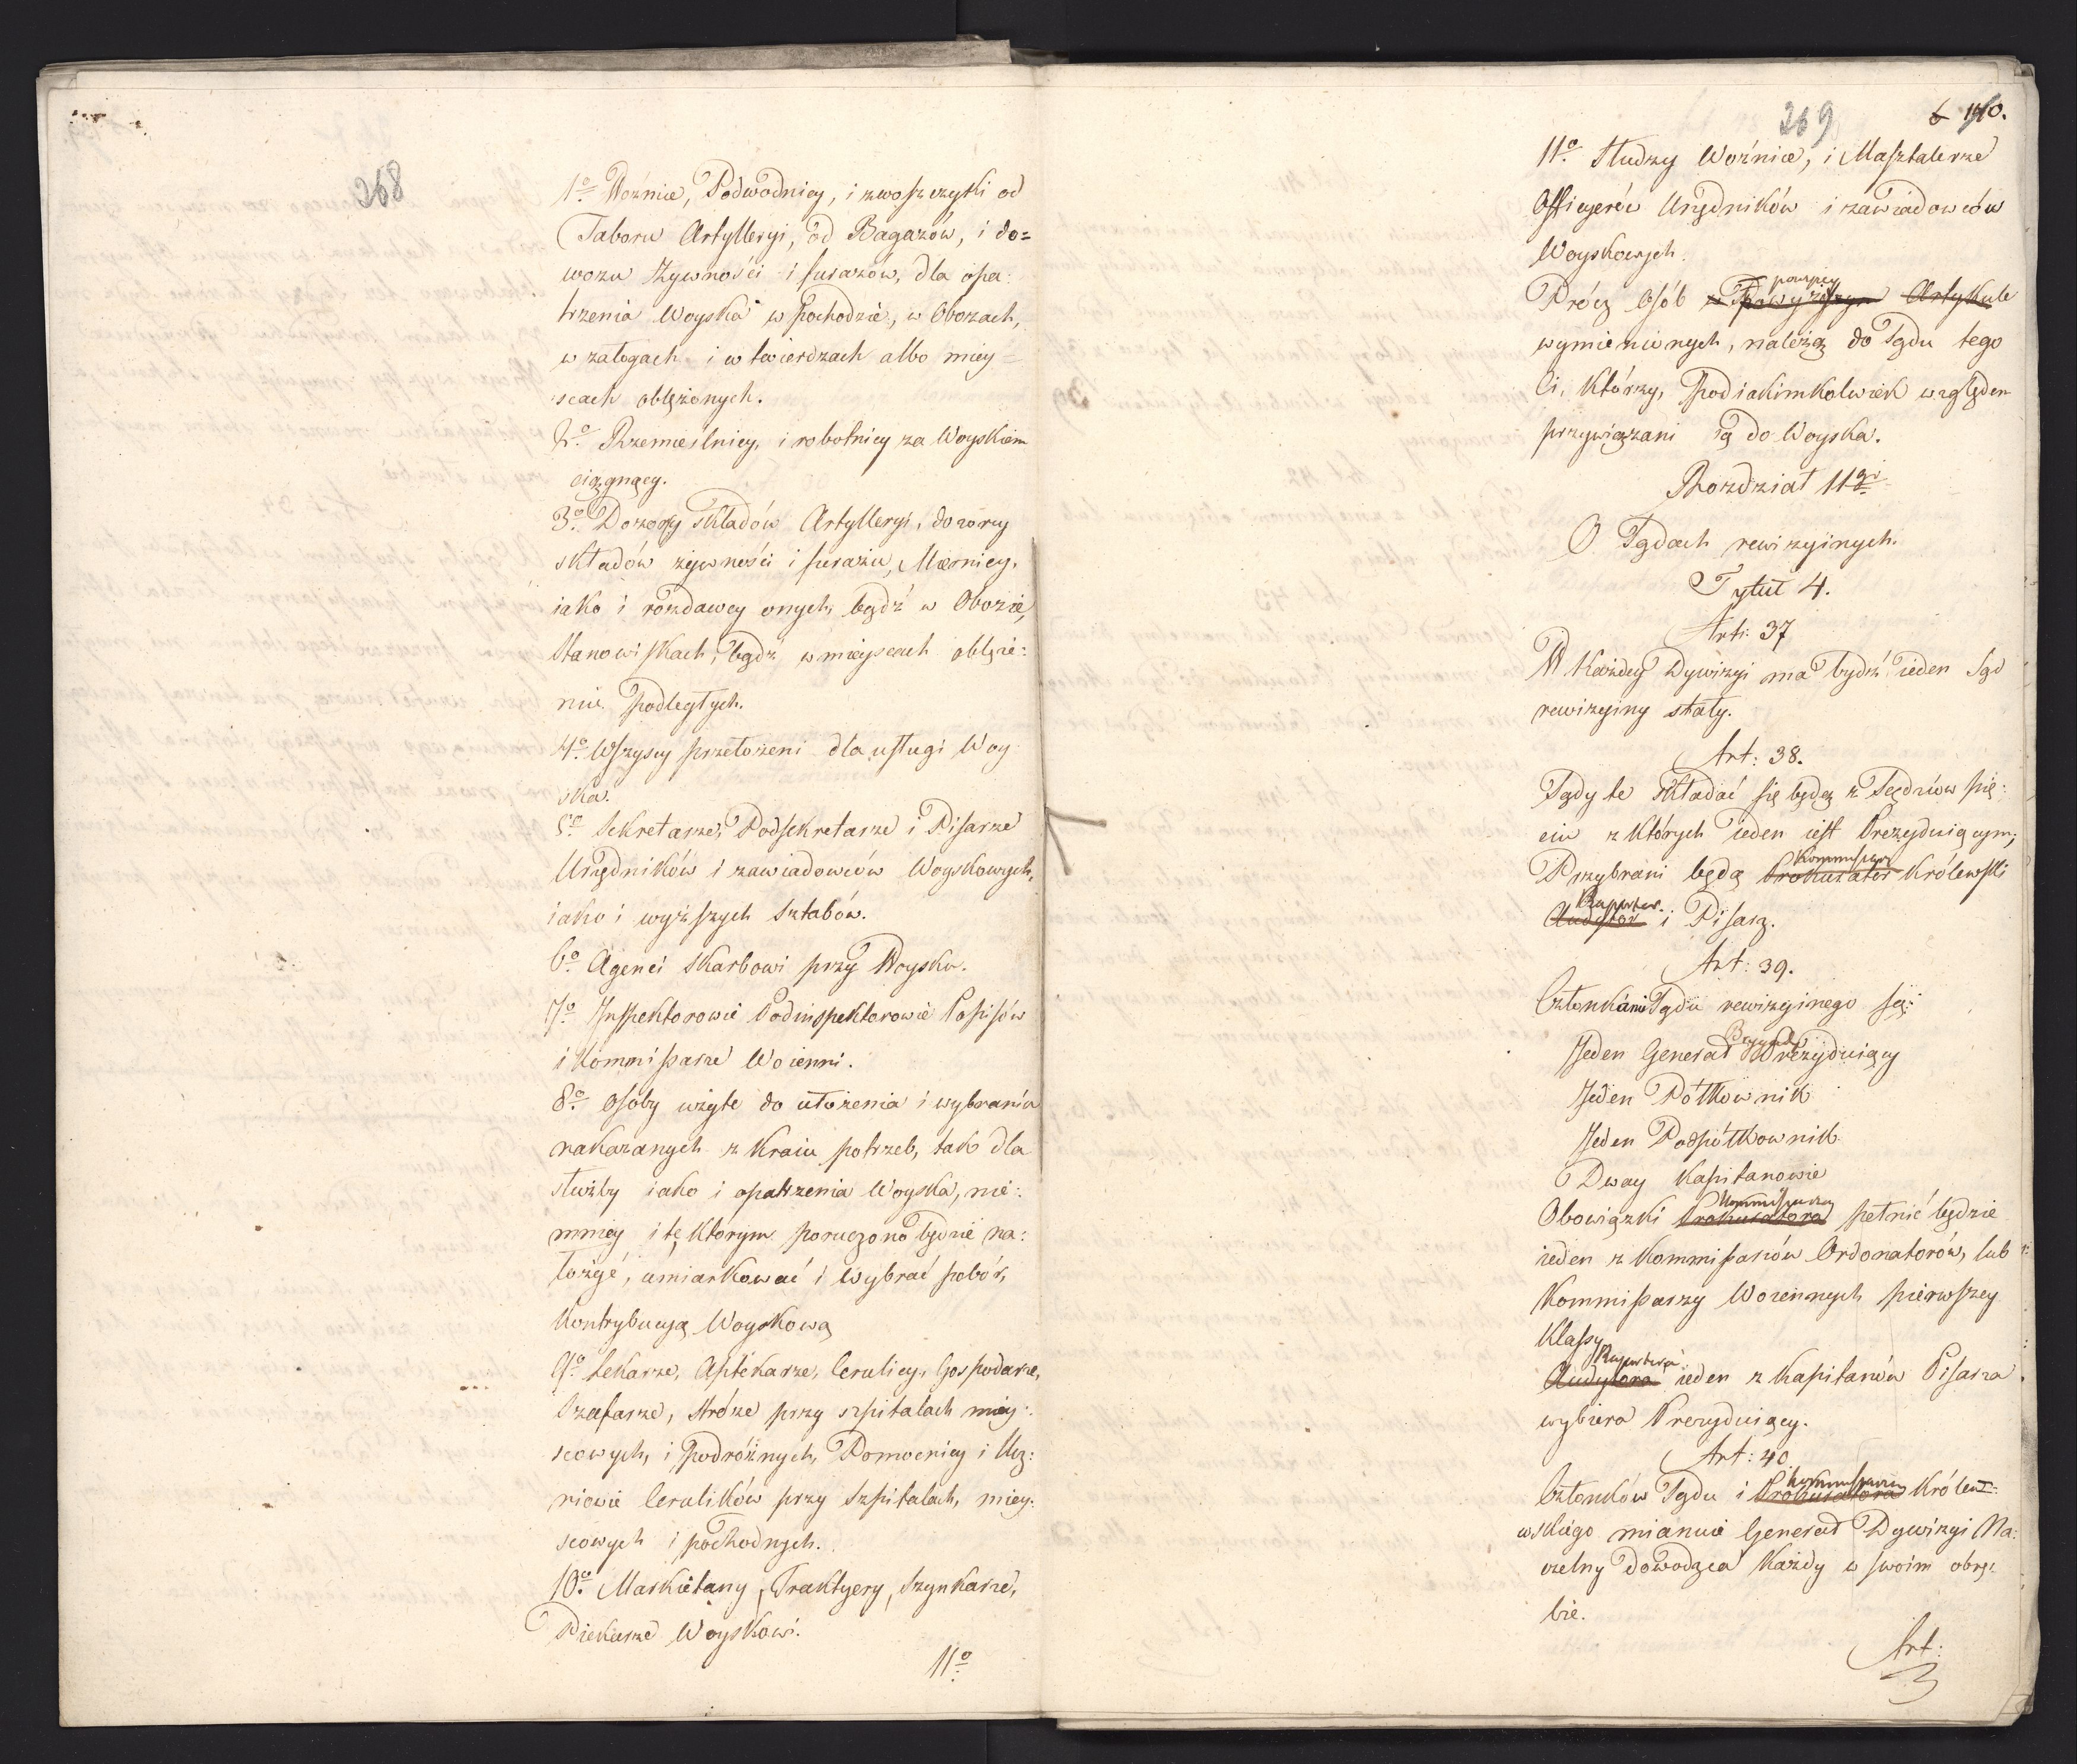 268
1º Woźnice, Podwodnicy, i zwoszczyki od
Taboru Artylleryi, od Bagażów, i do=
wozu Żywności i furażów, dla opa:
trzenia Woyska w pochodzie, w Obozach,
w załogach i w twierdzach albo miey=
scach oblężonych.
2º Rzemieślnicy, i robotnicy za Woyskiem
ciągnący.
3º Dozorcy składów Artylleryi, dozorcy
składów żywności i furażu, Miernicy,
iako i rozdawcy onych, bądź w Obozie,
Stanowiskach, bądź w mieyscach oblęże:
niu podległych.
4º Wszyscy przełożeni dla usługi Woy
ska.
5º Sekretarze, Podsekretarze i Pisarze
Urzędników i zawiadowców Woyskowych,
iako i wyższych Sztabów.
6º Agenci Skarbowi przy Woysku.
7º Inspektorowie Podinspektorowie Popisów
i Kommissarze Woienni.
8º Osoby użyte do ułożenia i wybrania
nakazanych z Kraiu potrzeb, tak dla
służby iako i opatrzenia Woyska, nie:
mniey i te, którym poruczono będzie na:
łożyć, umiarkować i wybrać pobór,
Kontrybucyą Woyskową
9º Lekarze, Aptekarze, Cerulicy, Gospodarze,
Szafarze, Stróże przy szpitalach miey:
scowych, i podróżnych, Pomocnicy i Ucz:
niowie Cerulików przy Szpitalach, miey:
scowych i pochodnych.
10º Markietany, Traktyery, Szynkarze,
Piekarze Woyskowi.
11º
269
110.
11º Słudzy Woźnice, i Masztalerze
Officyerów Urzędników i zawiadowców
Woyskowych.
powyżey
Prócz Osób w Powyższym Artykule
wymienionych, należą do Sądu tego
Ci, którzy, pod iakimkolwiek względem
przywiązani są do Woyska.
Rozdział 11gi
O Sądach rewizyinych.
Tytuł 4.
Art: 37
W każdey Dywizyi ma bydź ieden Sąd
rewizyiny stały.
Art: 38.
Sądy te składać się będą z Sędziów pię:
ciu z których ieden iest Prezyduiącym;
Kommissarz
Przybrani będą Prokurator Królewski
Rapporter
Audytor i Pisarz.
Art: 39.
Członkami Sądu rewizyinego są:
Brygady
Jeden Generał Prezyduiący
Jeden Półkownik
Jeden Podpółkownik
Dway Kapitanowie
Kommissarza
Obowiązki Prokuratora pełnić będzie
ieden z Kommissarzów Ordonatorów, lub
Kommissarzy Woiennych pierwszey
Klassy
Rapportera
Audytora ieden z Kapitanów Pisarza
wybiera Prezyduiący.
Art: 40
Kommissarza
Członków Sądu i Prokuratora Królew=
wskiego mianuie Generał Dywizyi Na:
czelny Dowódzca każdy w swoim obrę:
bie.
Art: